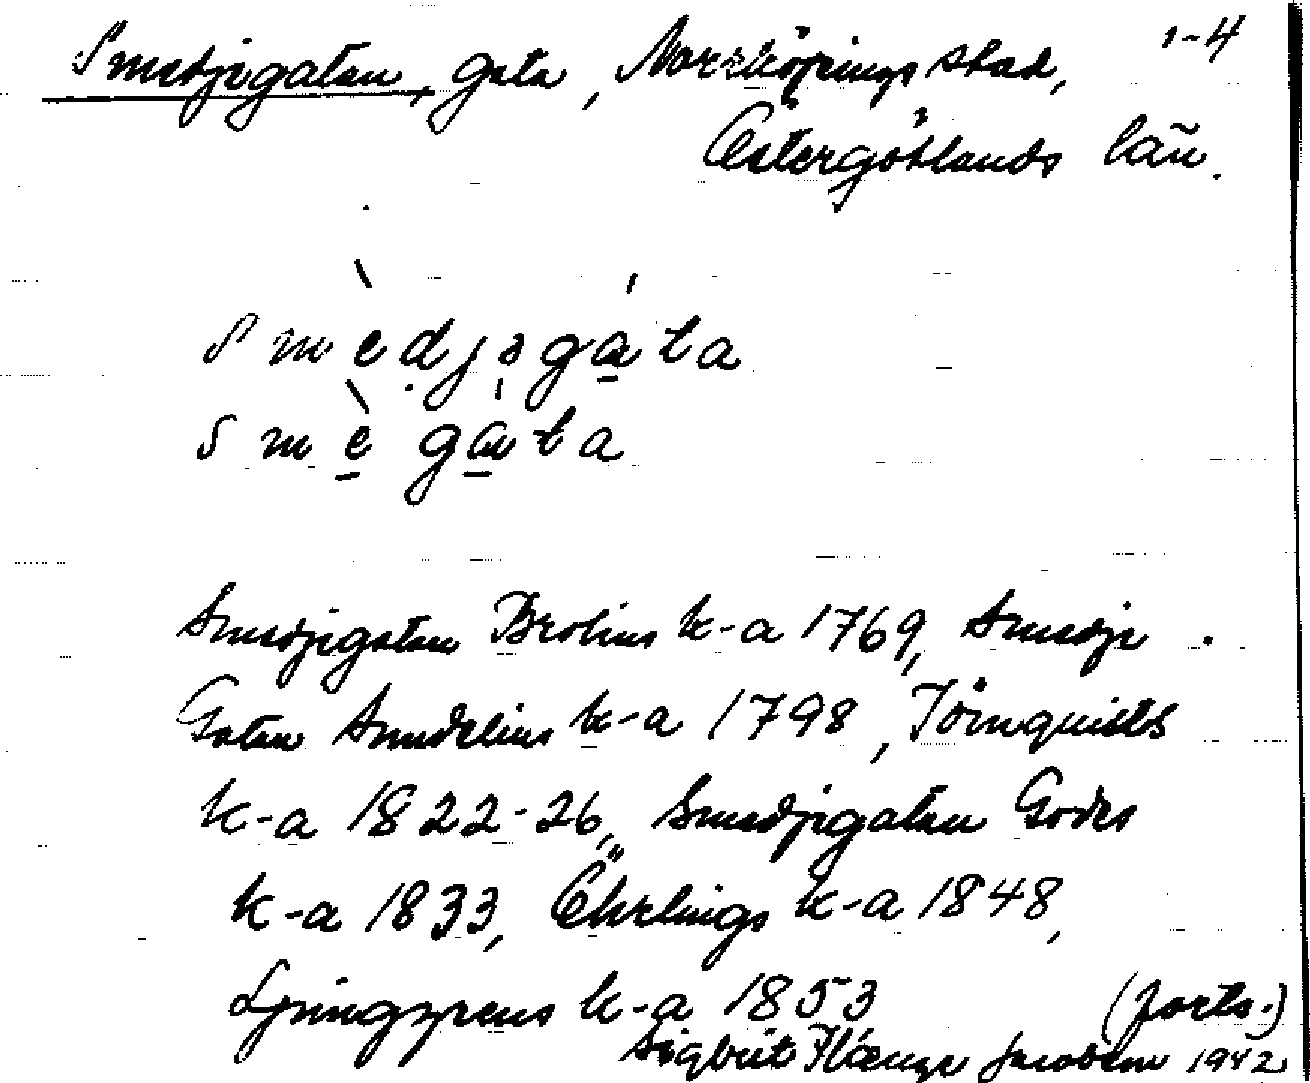 Smedjegatan, gata, Norrköpings stad, 1-4
Östergötlands län.
Smèdjəgáta
Smègáta
Smedjegatan Brolins k-a 1769, Smedje
Gatan Sundelius k-a 1798, Törnquists
k-a 1822-26, Smedjegatan Godes
k-a 1833, Öhrlings k-a 1848,
Ljunggrens k-a 1853 (forts.)
Sigbrit Jacobson 1942